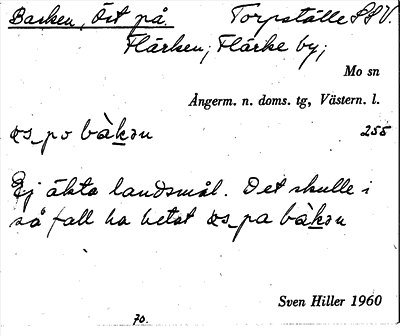 Backen, Öst på Torpställe SSV.
Flärken; Flärke by;
Mo sn
Ångerm. n. doms. tg, Västern. l.
æs_po bàkən 255
Ej äkta landsmål. Det skulle i
så fall ha hetat æs_pa bàkən
Sven Hiller 1960
70.